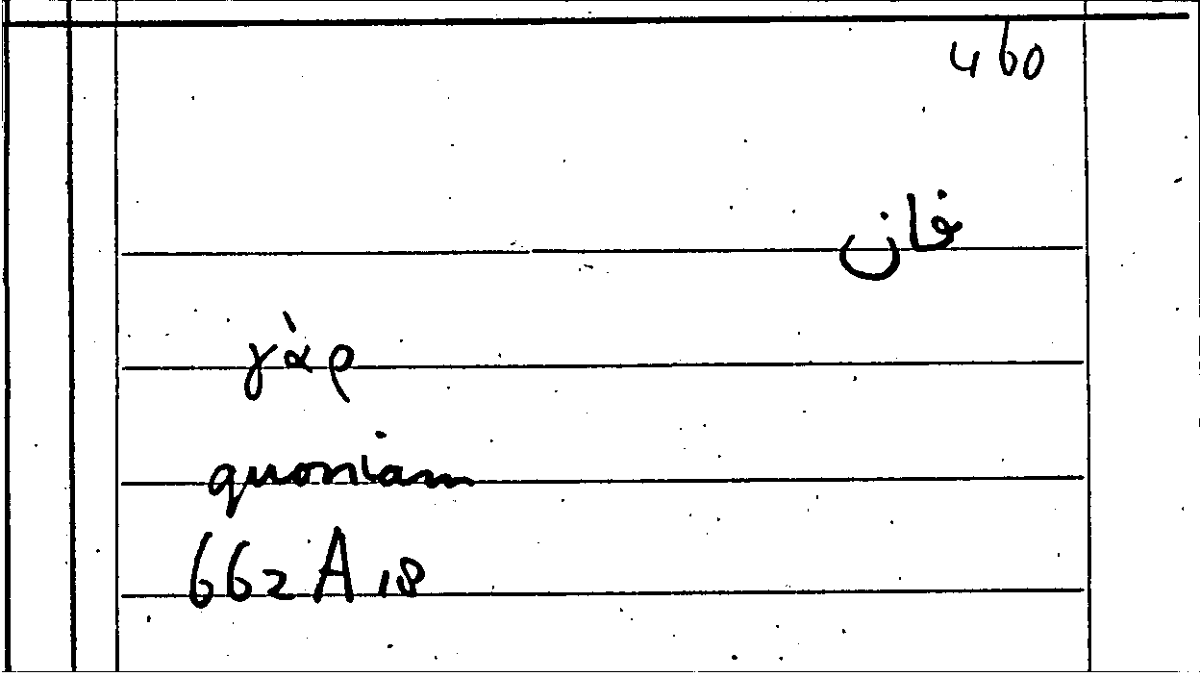 460
فان
γὰρ
quoniam
662 A 18